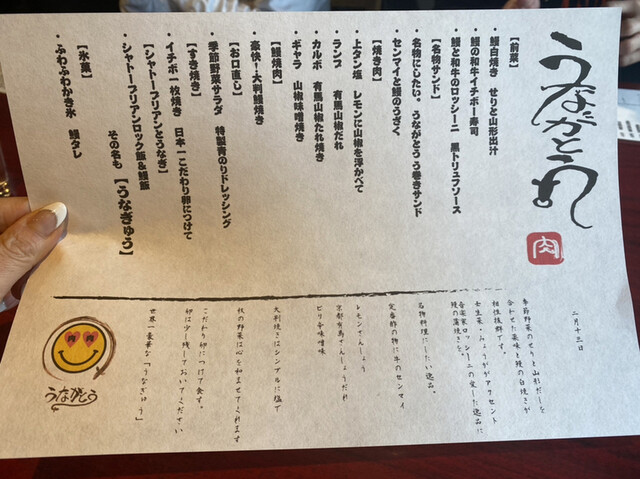 うながとう
肉
【前菜】
・鰻白焼き せりと山形出汁
・鰻の和牛イチボー寿司
・鰻と和牛のロッシーニ 黒トリュフソース
【名物サンド】
・名物にしたい。うながとう う巻きサンド
・センマイと鰻のうざく
【焼き肉】
・上タン塩 レモンに山椒を浮かべて
・ランプ 有馬山椒だれ
・カルボ 有馬山椒たれ焼き
・ギャラ 山椒味噌焼き
【鰻焼肉】
・豪快!大判鰻焼き
【お口直し】
・季節野菜サラダ 特製青のりドレッシング
【すき焼き】
・イチボ一枚焼き 日本一こだわり卵につけて
【シャトーブリアンとうなぎ】
・シャトーブリアンロック飯&鰻飯
その名も 【うなぎゅう】
【氷菓】
・ふわふわかき氷 鰻タレ
二月十三日
季節野菜のせりと山形だしを
合わせた薬味と鰻の白焼きが
相性抜群です。
玉生菜・みょうががアクセント
音楽家ロッシーニの愛した逸品に
鰻の蒲焼きを。
名物料理にしたい逸品。
定番酢の物に牛のセンマイ
レモンさんしょう
京都有馬さんしょうだれ
ピリ辛味噌味
大判焼きはシンプルに塩で
秋の野菜は心を和ませてくれます
こだわり卵につけて食す。
卵は少し残しておいてください
世界一豪華な「うなぎゅう」
肉 肉
うながとう